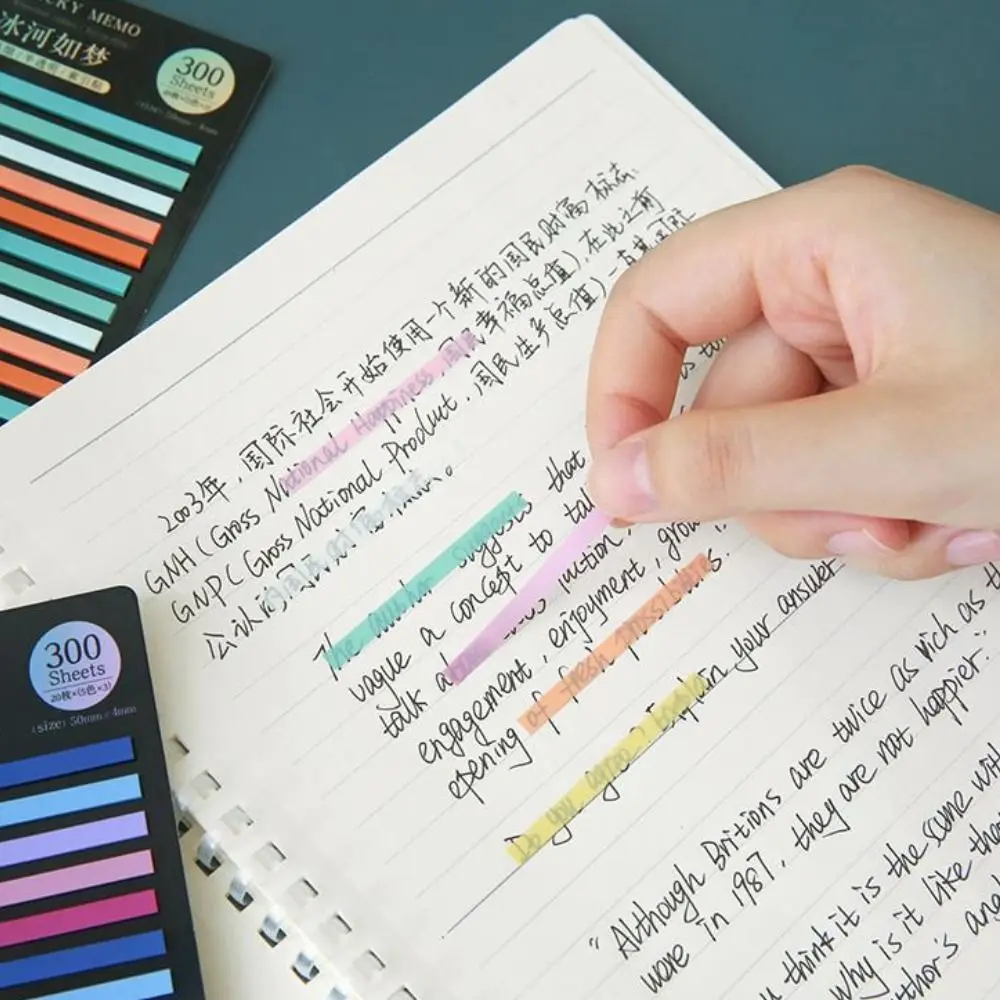 KY MEMO
冰河如梦
300
Sheets
2003年,国际社会开始使用一个新的国民财富标志.
GNH(Gross National Happiness,国民幸福总值).在此之前
GNP(Gross National Product.国民生产总值)一直是
公认的国民财富标志。
The author suggests that
vague a concept to
talk
engagement, enjoyment,
opening of fresh possibilities.
Do you agree? Explain your answer
"Although Britions are twice as rich as
ware in 1987, they are not happier."
think it is the same with
Why is it like
thor's
300
Sheets
20枚×(5色×3)
(size) 50mm×4mm